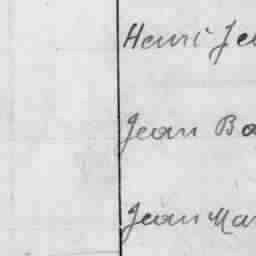 Henri Je
Jean Ba
Jean Mar